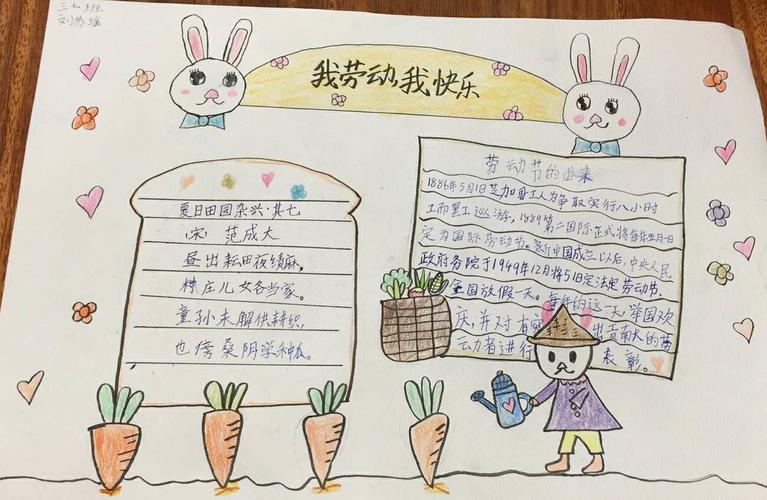 三七班
刘苏瑶
我劳动,我快乐
夏日田园杂兴·其七
宋 范成大
昼出耘田夜绩麻,
村庄儿女各当家。
童孙未解供耕织,
也傍桑阴学种瓜。
劳动节的由来
1886年5月1日芝加哥工人为争取实行八小时
工而罢工巡游,1889第二国际正式将每年五月一日
定为国际劳动节。新中国成立以后,中央人民
政府务院于1949年12月将51日定法定劳动节.
全国放假一天。每年的这一天,举国欢
庆,并对有 出贡献的劳
动者进行 表彰。